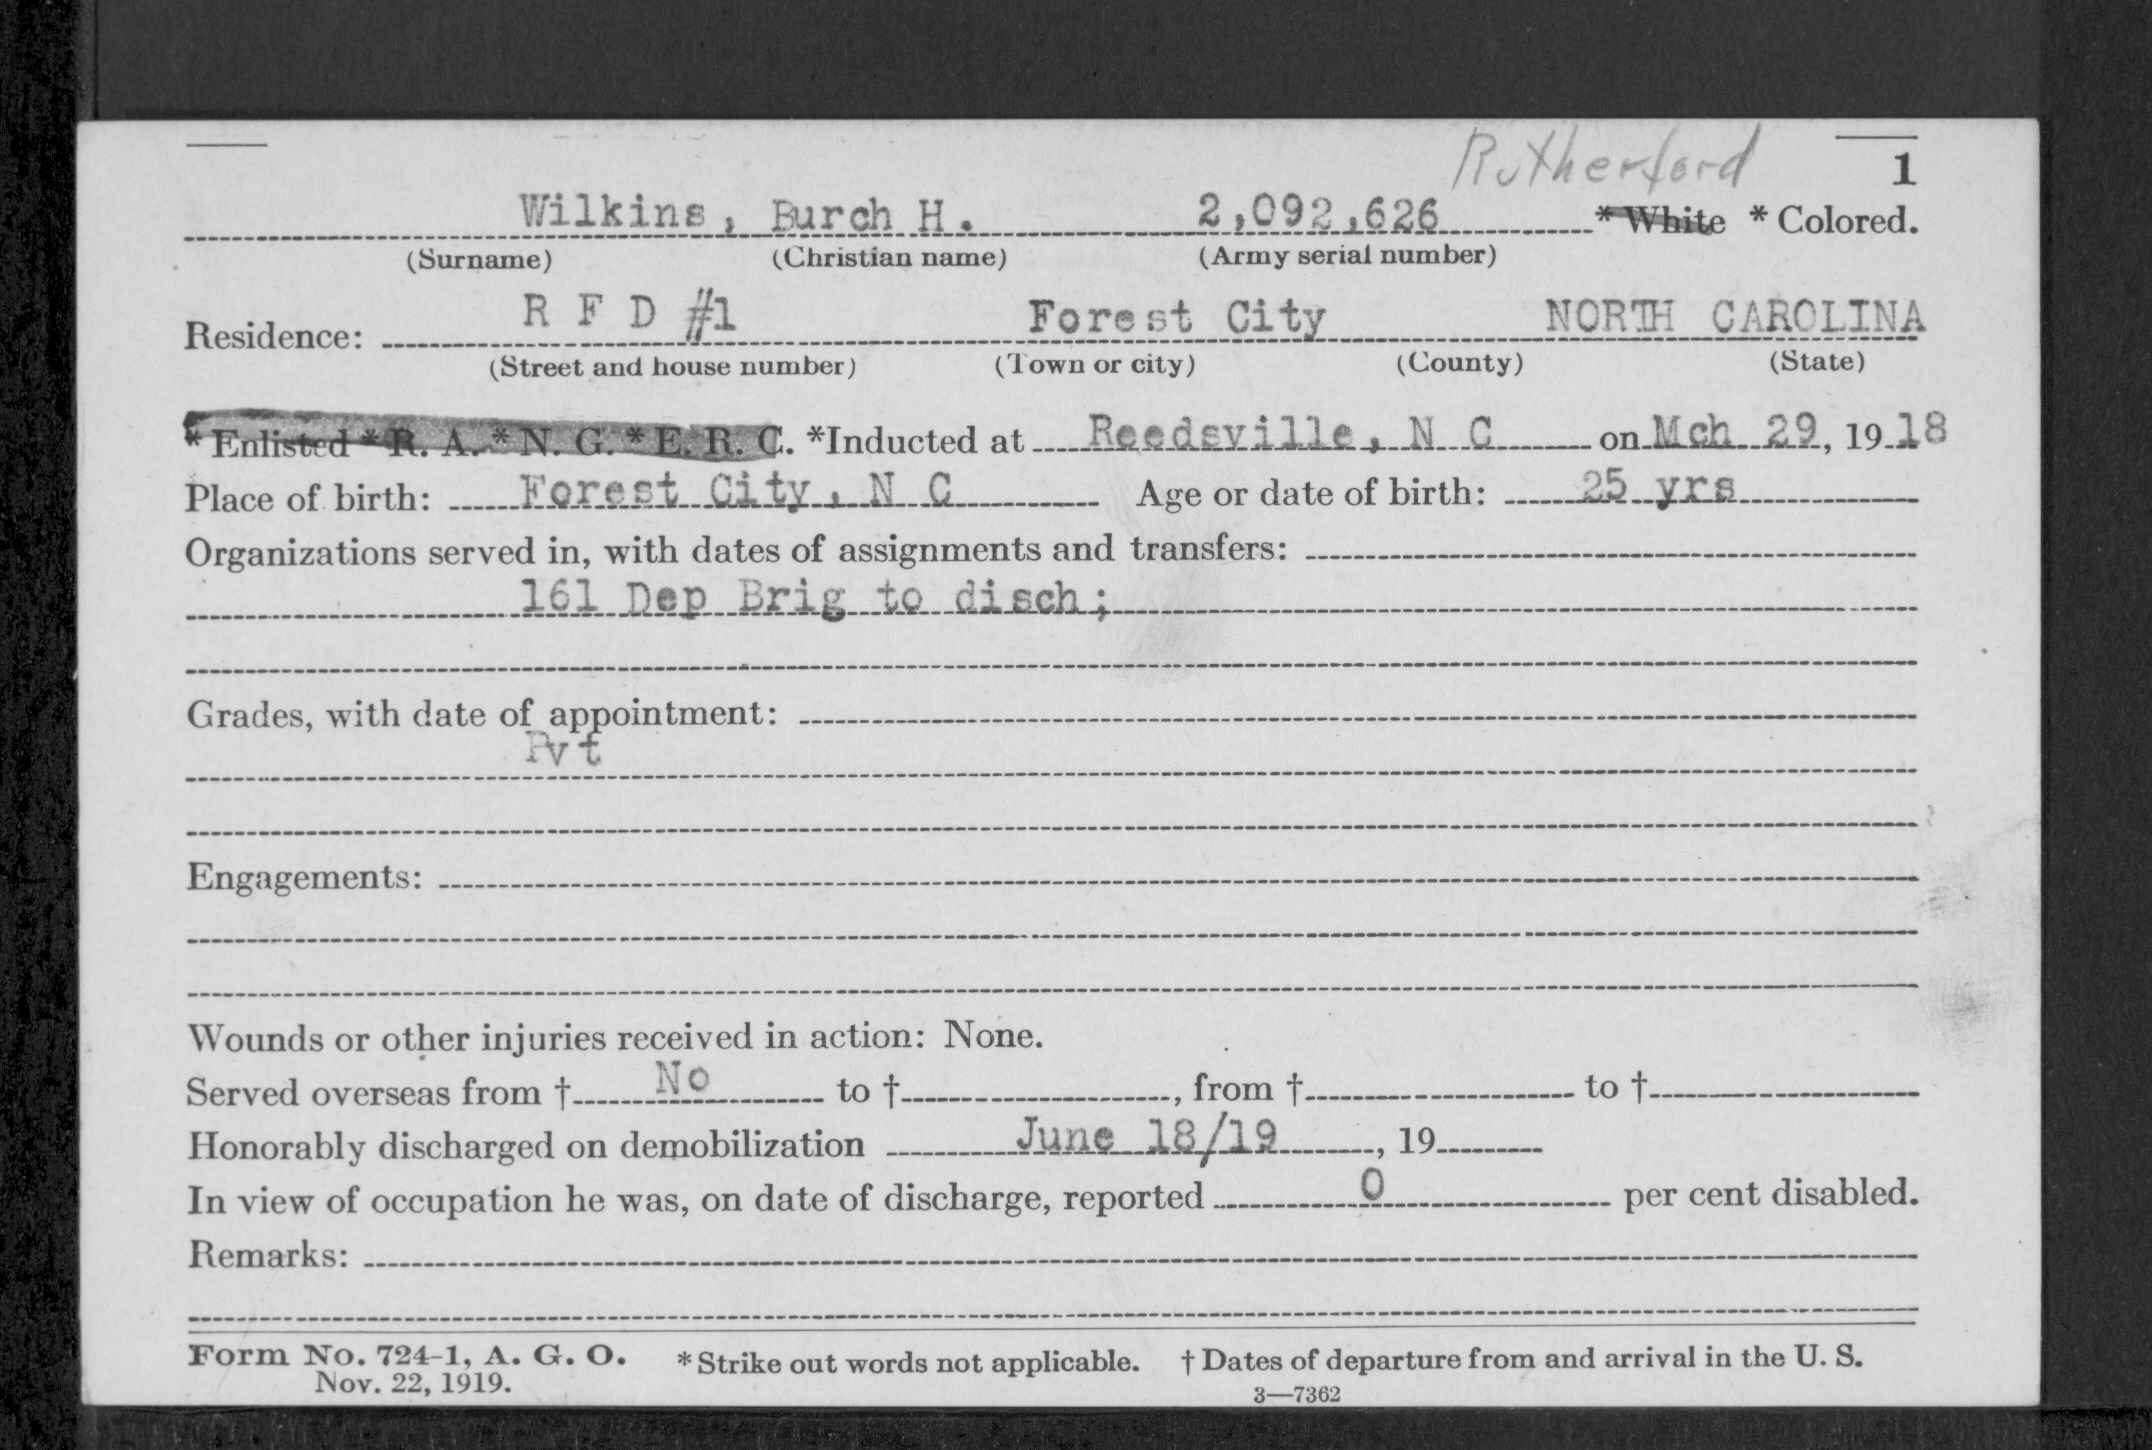 Rutherford 1
Wilkins, Burch H. 2,092,626 * White * Colored.
(Surname) (Christian name) (Army serial number)
Residence: R F D #1 Forest City NORTH CAROLINA
(Street and house number) (Town or city) (County) (State)
* Enlisted * R. A. * N. G. * E. R. C. *Inducted at Reedsville, N C on Mch 29, 19 18
Place of birth: Forest City, N C Age or date of birth: 25 yrs
Organizations served in, with dates of assignments and transfers:
161 Dep Brig to disch;
Grades, with date of appointment:
Pvt
Engagements:
Wounds or other injuries received in action: None.
Served overseas from † No to †, from † to †
Honorably discharged on demobilization June 18/19, 19
In view of occupation he was, on date of discharge, reported 0 per cent disabled.
Remarks:
Form No. 724-1, A. G. O. *Strike out words not applicable. † Dates of departure from and arrival in the U. S.
Nov. 22, 1919. 3—7362